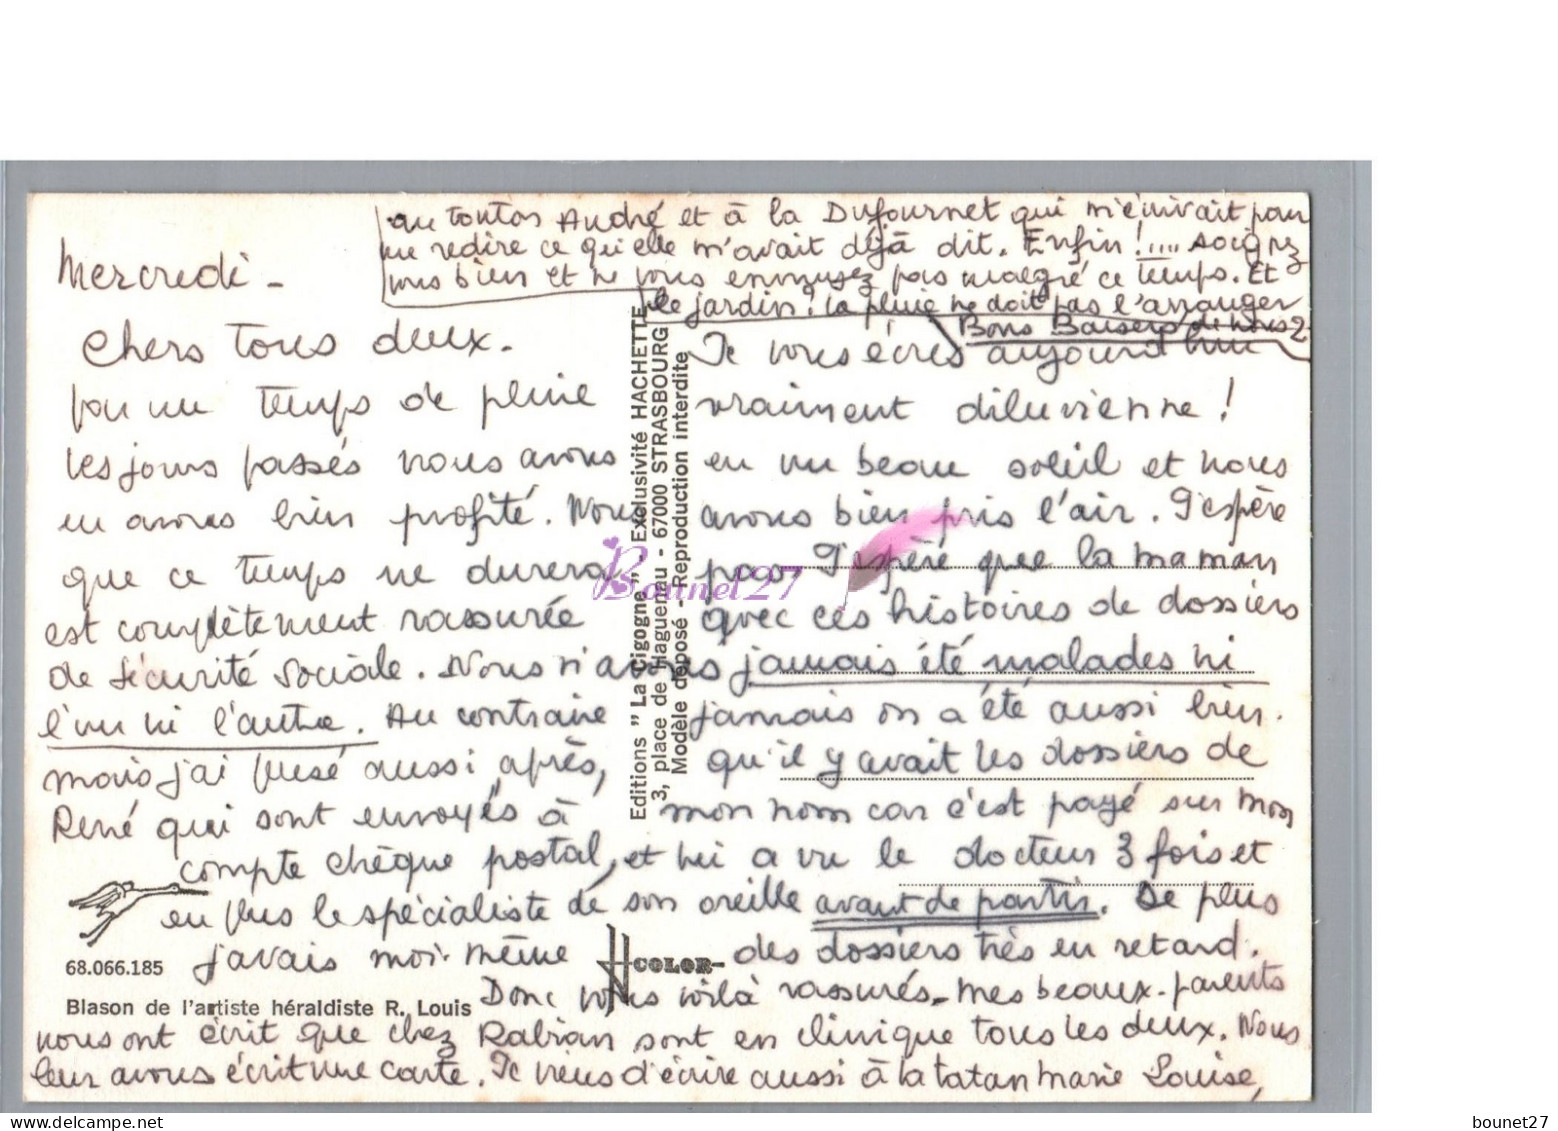 Mercredi -
Chers tous deux. Je vous écris aujourd'hui
par un temps de pluie vraiment diluvienne !
Les jours passés nous avons eu un beau soleil et nous
en avons bien profité. Nous avons bien pris l'air. J'espère
que ce temps ne durera pas. J'espère que la maman
est complètement rassurée avec ces histoires de dossiers
de Sécurité Sociale. Nous n'avons jamais été malades ni
l'un ni l'autre. Au contraire jamais on a été aussi bien.
mais j'ai pensé aussi, après, qu'il y avait les dossiers de
René qui sont envoyés à mon nom car c'est payé sur mon
compte chèque postal, et lui a vu le docteur 3 fois et
en plus le spécialiste de son oreille avant de partir. De plus
j'avais moi-même des dossiers très en retard.
Donc vous voilà rassurés - mes beaux-parents
nous ont écrit que chez Rabian sont en clinique tous les deux. Nous
leur avons écrit une carte. Je viens d'écrire aussi à la tatan Marie Louise,
au tonton André et à la Dufournet qui m'écrivait pour
me redire ce qu'elle m'avait déjà dit. Enfin !.... soignez
vous bien et ne vous ennuyez pas malgré ce temps. Et
le jardin ? la pluie ne doit pas l'arranger
Bons Baisers de nous 2
Editions "La Cigogne" - Exclusivité HACHETTE
3, place de Haguenau - 67000 STRASBOURG
Modèle déposé - Reproduction interdite
Bounet27
COLOR
68.066.185
Blason de l'artiste héraldiste R. Louis
www.delcampe.net
bounet27